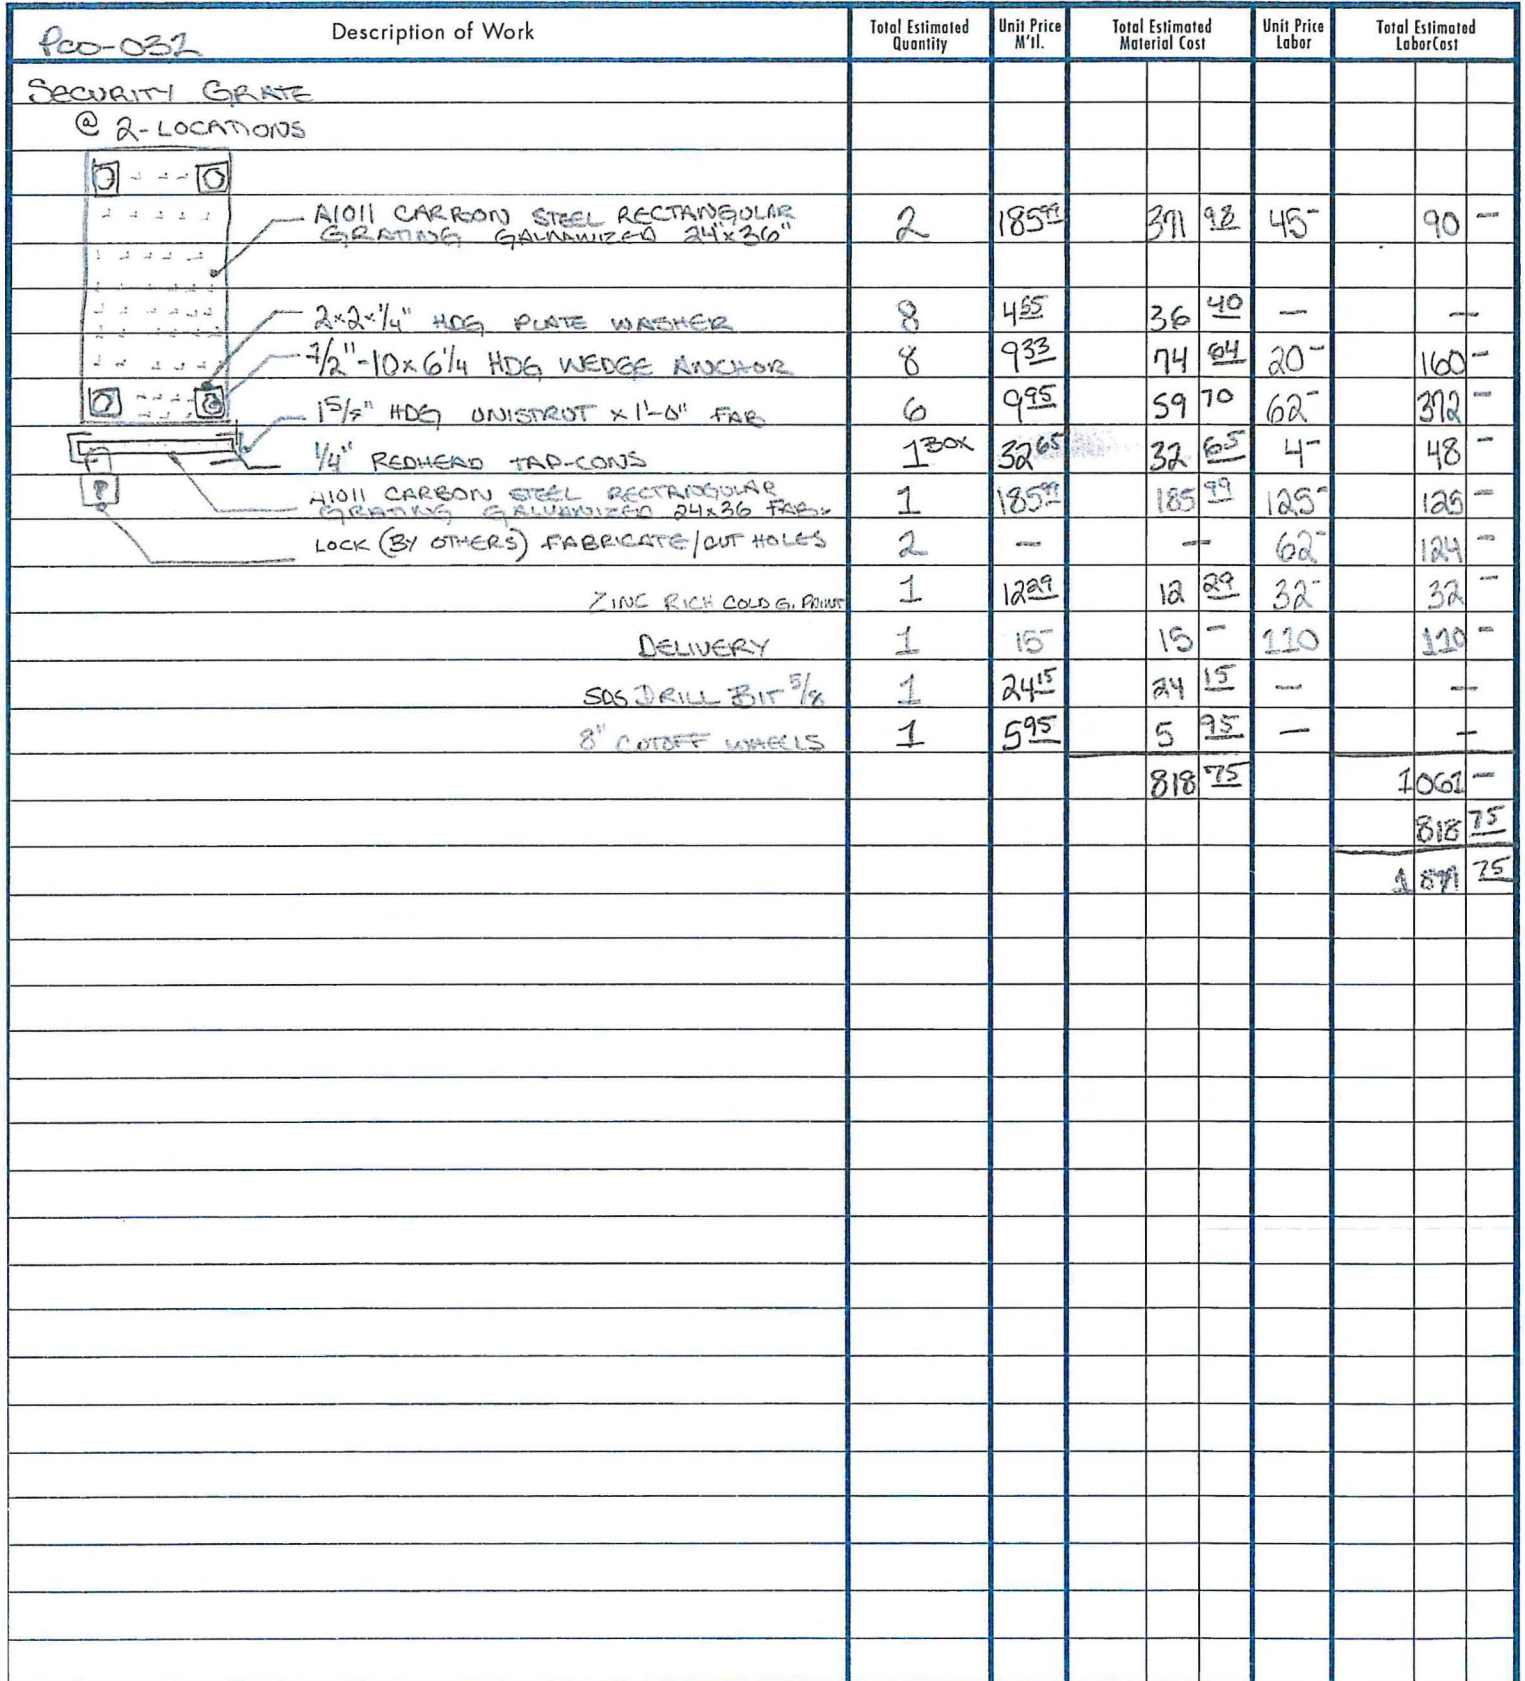 Pco-032 Description of Work Total Estimated Quantity Unit Price M'tl. Total Estimated Material Cost Unit Price Labor Total Estimated LaborCost
SECURITY GRATE
@ 2-LOCATIONS
A1011 CARBON STEEL RECTANGULAR
GRATING GALVANIZED 24"x36" 2 185 99 371 98 45- 90 -
2x2x1/4" HDG PLATE WASHER 8 4 55 36 40 - -
1/2"-10x6 1/4 HDG WEDGE ANCHOR 8 9 33 74 64 20- 160 -
1 5/8" HDG UNISTRUT x 1'-0" FAB 6 9 95 59 70 62- 372 -
1/4" REDHEAD TAP-CONS 1 BOX 32 65 32 65 4- 48 -
A1011 CARBON STEEL RECTANGULAR
GRATING GALVANIZED 24x36 FAB. 1 185 99 185 99 125- 125 -
LOCK (BY OTHERS) FABRICATE/CUT HOLES 2 - - 62- 124 -
ZINC RICH COLD G. PAINT 1 12 29 12 29 32- 32 -
DELIVERY 1 15- 15 - 110 110 -
SDS DRILL BIT 5/8 1 24 15 24 15 - -
8" CUTOFF WHEELS 1 5 95 5 95 - -
818 75 1061 -
818 75
1879 75